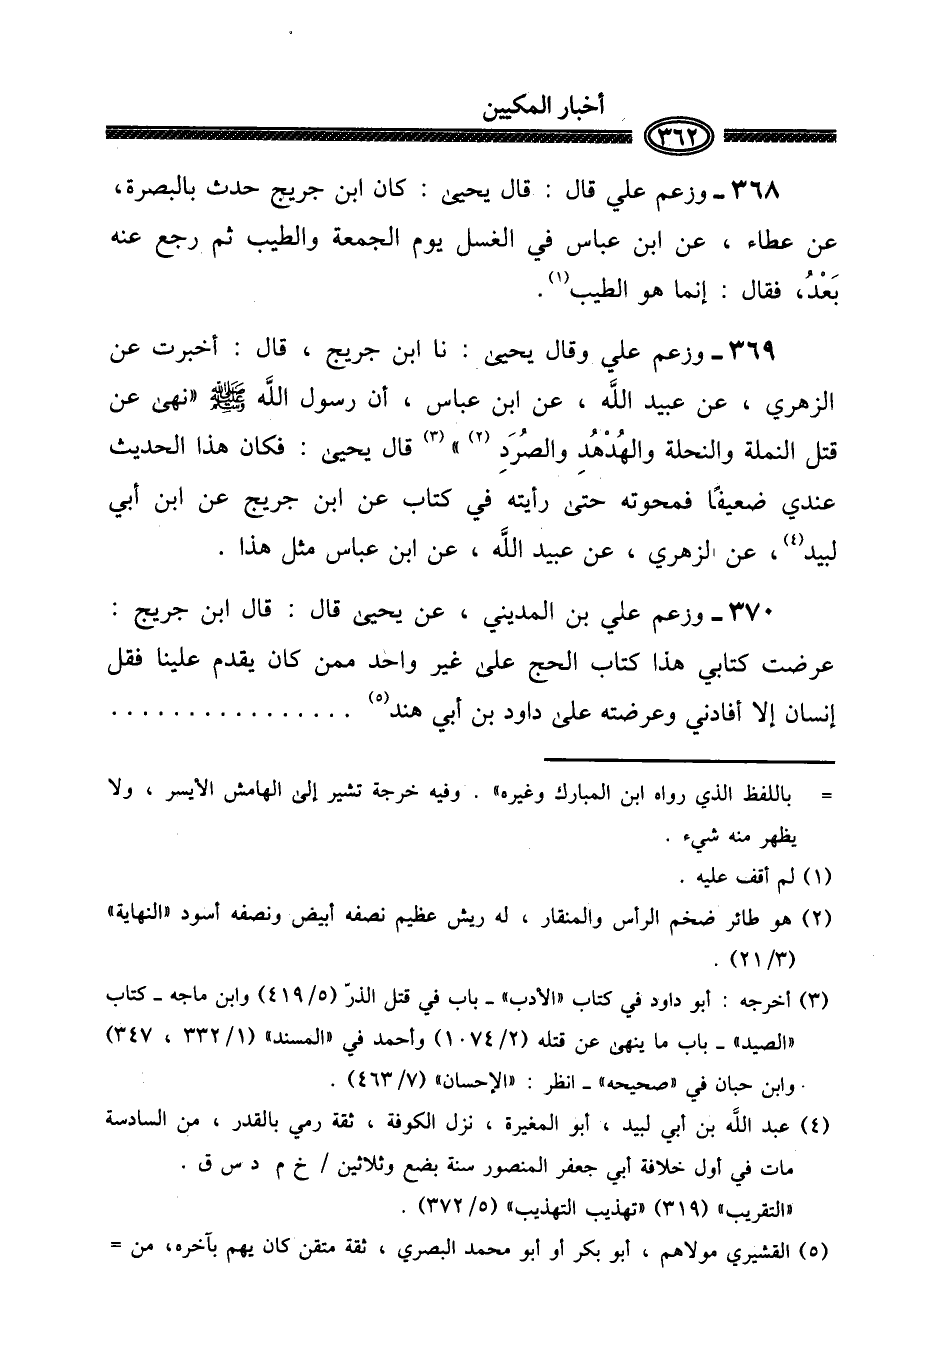 أخبار المكيين
٣٦٢
٣٦٨ ـ وزعم علي قال : قال يحيىٰ : كان ابن جريج حدث بالبصرة،
عن عطاء ، عن ابن عباس في الغسل يوم الجمعة والطيب ثم رجع عنه
بَعْدُ، فقال : إنما هو الطيب(١) .
٣٦٩ ـ وزعم علي وقال يحيىٰ : نا ابن جريج ، قال : أخبرت عن
الزهري ، عن عبيد اللَّه ، عن ابن عباس ، أن رسول اللَّه ﷺ «نهىٰ عن
قتل النملة والنحلة والهُدْهُدِ والصُرَدِ (٢) » (٣) قال يحيىٰ : فكان هذا الحديث
عندي ضعيفًا فمحوته حتىٰ رأيته في كتاب عن ابن جريج عن ابن أبي
لبيد(٤)، عن الزهري ، عن عبيد اللَّه ، عن ابن عباس مثل هذا .
٣٧٠ ـ وزعم علي بن المديني ، عن يحيىٰ قال : قال ابن جريج :
عرضت كتابي هذا كتاب الحج علىٰ غير واحد ممن كان يقدم علينا فقل
إنسان إلا أفادني وعرضته علىٰ داود بن أبي هند(٥) . . . . . . . . . . . . . . . .
= باللفظ الذي رواه ابن المبارك وغيره» . وفيه خرجة تشير إلىٰ الهامش الأيسر ، ولا
يظهر منه شيء .
(١) لم أقف عليه .
(٢) هو طائر ضخم الرأس والمنقار ، له ريش عظيم نصفه أبيض ونصفه أسود «النهاية»
(٣/ ٢١) .
(٣) أخرجه : أبو داود في كتاب «الأدب» ـ باب في قتل الذرّ (٥/ ٤١٩) وابن ماجه ـ كتاب
«الصيد» ـ باب ما ينهىٰ عن قتله (٢/ ١٠٧٤) وأحمد في «المسند» (١/ ٣٣٢ ، ٣٤٧)
وابن حبان في «صحيحه» ـ انظر : «الإحسان» (٧/ ٤٦٣) .
(٤) عبد اللَّه بن أبي لبيد ، أبو المغيرة ، نزل الكوفة ، ثقة رمي بالقدر ، من السادسة
مات في أول خلافة أبي جعفر المنصور سنة بضع وثلاثين / خ م د س ق .
«التقريب» (٣١٩) «تهذيب التهذيب» (٥/ ٣٧٢) .
(٥) القشيري مولاهم ، أبو بكر أو أبو محمد البصري ، ثقة متقن كان يهم بآخره، من =